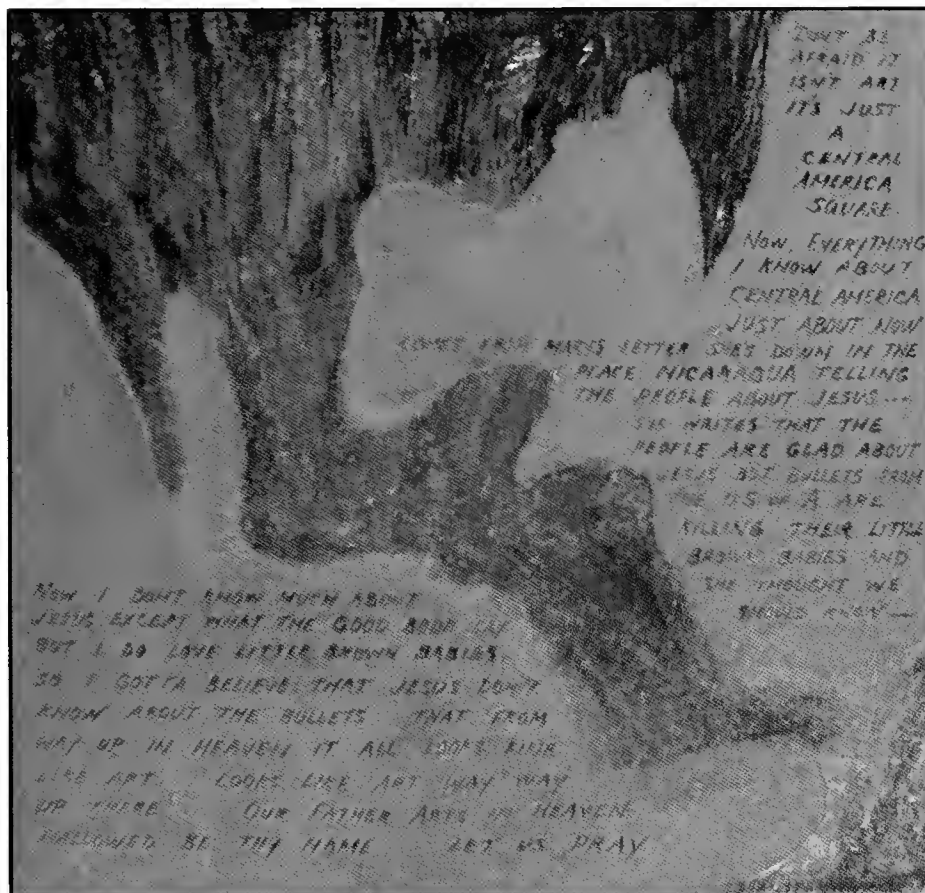 DON'T BE
AFRAID IT
ISN'T ART
IT'S JUST
A
CENTRAL
AMERICA
SQUARE.
NOW, EVERYTHING
I KNOW ABOUT
CENTRAL AMERICA
JUST ABOUT NOW
COMES FROM LETTER SHE'S DOWN IN THE
PLACE NICARAQUA TELLING
THE PEOPLE ABOUT JESUS---
SHE WRITES THAT THE
PEOPLE ARE GLAD ABOUT
JESUS BUT BULLETS FROM
THE US OF A ARE
KILLING THEIR LITTLE
BROWN BABIES AND
SHE THOUGHT WE
SHOULD KNOW—
NOW I DONT KNOW MUCH ABOUT
JESUS EXCEPT WHAT THE GOOD BOOK SAY
BUT I DO LOVE LITTLE BROWN BABIES
SO I GOTTA BELIEVE THAT JESUS DON'T
KNOW ABOUT THE BULLETS THAT FROM
WAY UP IN HEAVEN IT ALL LOOKS KINA
LIKE ART LOOKS LIKE ART WAY WAY
UP THERE OUR FATHER ARTS IN HEAVEN
HALLOWED BE THY NAME LET US PRAY